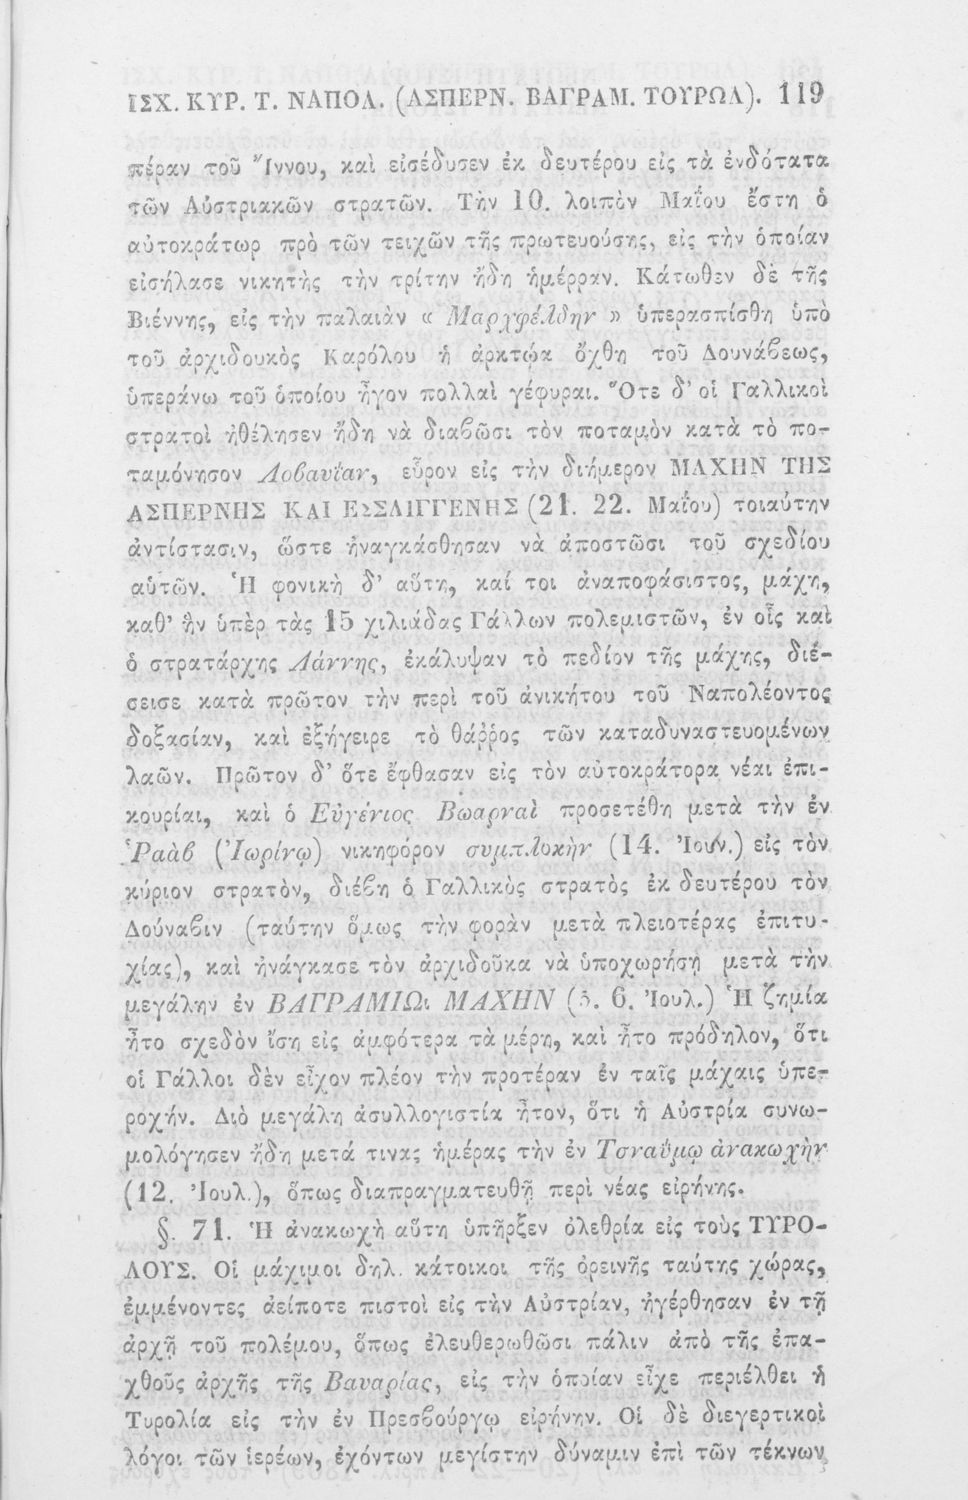 ΙΣΧ. ΚΥΡ. Τ. ΝΑΠΟΛ. (ΑΣΠΕΡΝ. ΒΑΓΡΑΜ. ΤΟΥΡΩΛ). 119
πέραν τοῦ Ἴννου, καὶ εἰσέδυσεν ἐκ δευτέρου εἰς τὰ ἐνδότατα
τῶν Αὐστριακῶν στρατῶν. Τὴν 10. λοιπὸν Μαΐου ἔστη ὁ
αὐτοκράτωρ πρὸ τῶν τειχῶν τῆς πρωτευούσης, εἰς τὴν ὁποίαν
εἰσήλασε νικητὴς τὴν τρίτην ἤδη ἡμέρραν. Κάτωθεν δὲ τῆς
Βιέννης, εἰς τὴν παλαιὰν « Μαρχφέλδην » ὑπερασπίσθη ὑπὸ
τοῦ ἀρχιδουκὸς Καρόλου ἡ ἀρκτῴα ὄχθη τοῦ Δουνάβεως,
ὑπεράνω τοῦ ὁποίου ἦγον πολλαὶ γέφυραι. Ὅτε δ’ οἱ Γαλλικοὶ
στρατοὶ ἠθέλησεν ἤδη νὰ διαβῶσι τὸν ποταμὸν κατὰ τὸ πο-
ταμόνησον Λοβαυΐαν, εὗρον εἰς τὴν διήμερον ΜΑΧΗΝ ΤΗΣ
ΑΣΠΕΡΝΗΣ ΚΑΙ ΕΣΣΛΙΓΓΕΝΗΣ (21. 22. Μαΐου) τοιαύτην
ἀντίστασιν, ὥστε ἠναγκάσθησαν νὰ ἀποστῶσι τοῦ σχεδίου
αὑτῶν. Ἡ φονικὴ δ’ αὕτη, καί τοι ἀναποφάσιστος, μάχη,
καθ’ ἣν ὑπὲρ τὰς 15 χιλιάδας Γάλλων πολεμιστῶν, ἐν οἷς καὶ
ὁ στρατάρχης Λάννης, ἐκάλυψαν τὸ πεδίον τῆς μάχης, διέ-
σεισε κατὰ πρῶτον τὴν περὶ τοῦ ἀνικήτου τοῦ Ναπολέοντος
δοξασίαν, καὶ ἐξήγειρε τὸ θάῤῥος τῶν καταδυναστευομένων
λαῶν. Πρῶτον δ’ ὅτε ἔφθασαν εἰς τὸν αὐτοκράτορα νέαι ἐπι-
κουρίαι, καὶ ὁ Εὐγένιος Βωαρναὶ προσετέθη μετὰ τὴν ἐν
Ῥαὰβ (Ἰωρίνῳ) νικηφόρον συμπλοκὴν (14. Ἰουν.) εἰς τὸν
κύριον στρατὸν, διέβη ὁ Γαλλικὸς στρατὸς ἐκ δευτέρου τὸν
Δούναβιν (ταύτην ὅμως τὴν φορὰν μετὰ πλειοτέρας ἐπιτυ-
χίας), καὶ ἠνάγκασε τὸν ἀρχιδοῦκα νὰ ὑποχωρήσῃ μετὰ τὴν
μεγάλην ἐν ΒΑΓΡΑΜΙΩι ΜΑΧΗΝ (5. 6. Ἰουλ.) Ἡ ζημία
ἦτο σχεδὸν ἴση εἰς ἀμφότερα τὰ μέρη, καὶ ἦτο πρόδηλον, ὅτι
οἱ Γάλλοι δὲν εἶχον πλέον τὴν προτέραν ἐν ταῖς μάχαις ὑπε-
ροχήν. Διὸ μεγάλη ἀσυλλογιστία ἦτον, ὅτι ἡ Αὐστρία συνω-
μολόγησεν ἤδη μετά τινας ἡμέρας τὴν ἐν Τσναΰμῳ ἀνακωχὴν
(12. Ἰουλ.), ὅπως διαπραγματευθῇ περὶ νέας εἰρήνης.
§. 71. Ἡ ἀνακωχὴ αὕτη ὑπῆρξεν ὀλεθρία εἰς τοὺς ΤΥΡΟ-
ΛΟΥΣ. Οἱ μάχιμοι δηλ. κάτοικοι τῆς ὀρεινῆς ταύτης χώρας,
ἐμμένοντες ἀείποτε πιστοὶ εἰς τὴν Αὐστρίαν, ἠγέρθησαν ἐν τῇ
ἀρχῇ τοῦ πολέμου, ὅπως ἐλευθερωθῶσι πάλιν ἀπὸ τῆς ἐπα-
χθοῦς ἀρχῆς τῆς Βαυαρίας, εἰς τὴν ὁποίαν εἶχε περιέλθει ἡ
Τυρολία εἰς τὴν ἐν Πρεσβούργῳ εἰρήνην. Οἱ δὲ διεγερτικοὶ
λόγοι τῶν ἱερέων, ἐχόντων μεγίστην δύναμιν ἐπὶ τῶν τέκνων